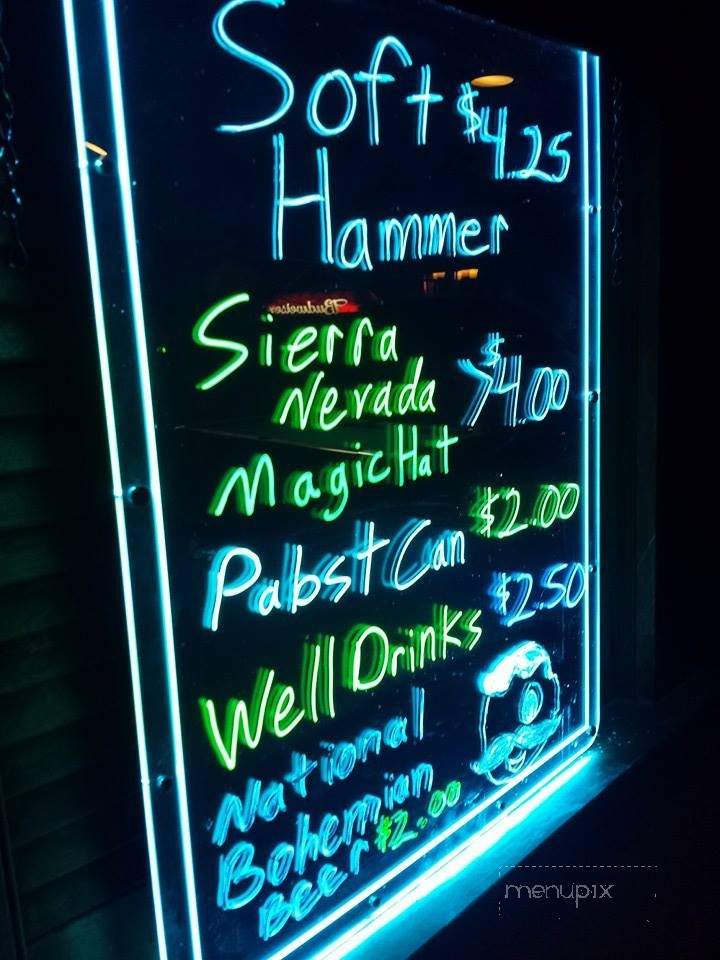 Soft $4.25
Hammer
Budweiser
Sierra
Nevada >$4.00
Magic Hat
Pabst Can $2.00
Well Drinks $2.50
National
Bohemian
BEER $2.00
menupix